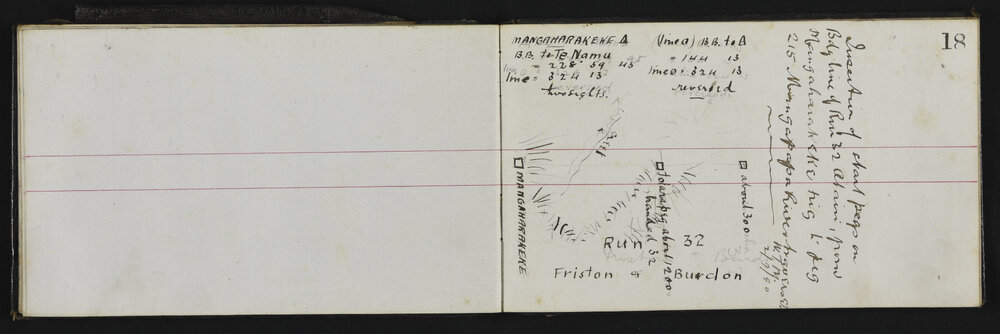 18
MANGAHARAKEKE Δ
B.B. to Te Namu
= 228 59 45
line = 324 13
two sights.
(line a) B.B. to Δ
= 144 13
line a = 324 13
reversed
MANGAHARAKEKE
totara peg about 1200
branded 32
about 300
Run 32
Friston & Burdon
Insertion of start pegs on
Bdy line of Run 32 Atawi, from
Mangaharakeke trig to peg
215 Mangapapa River